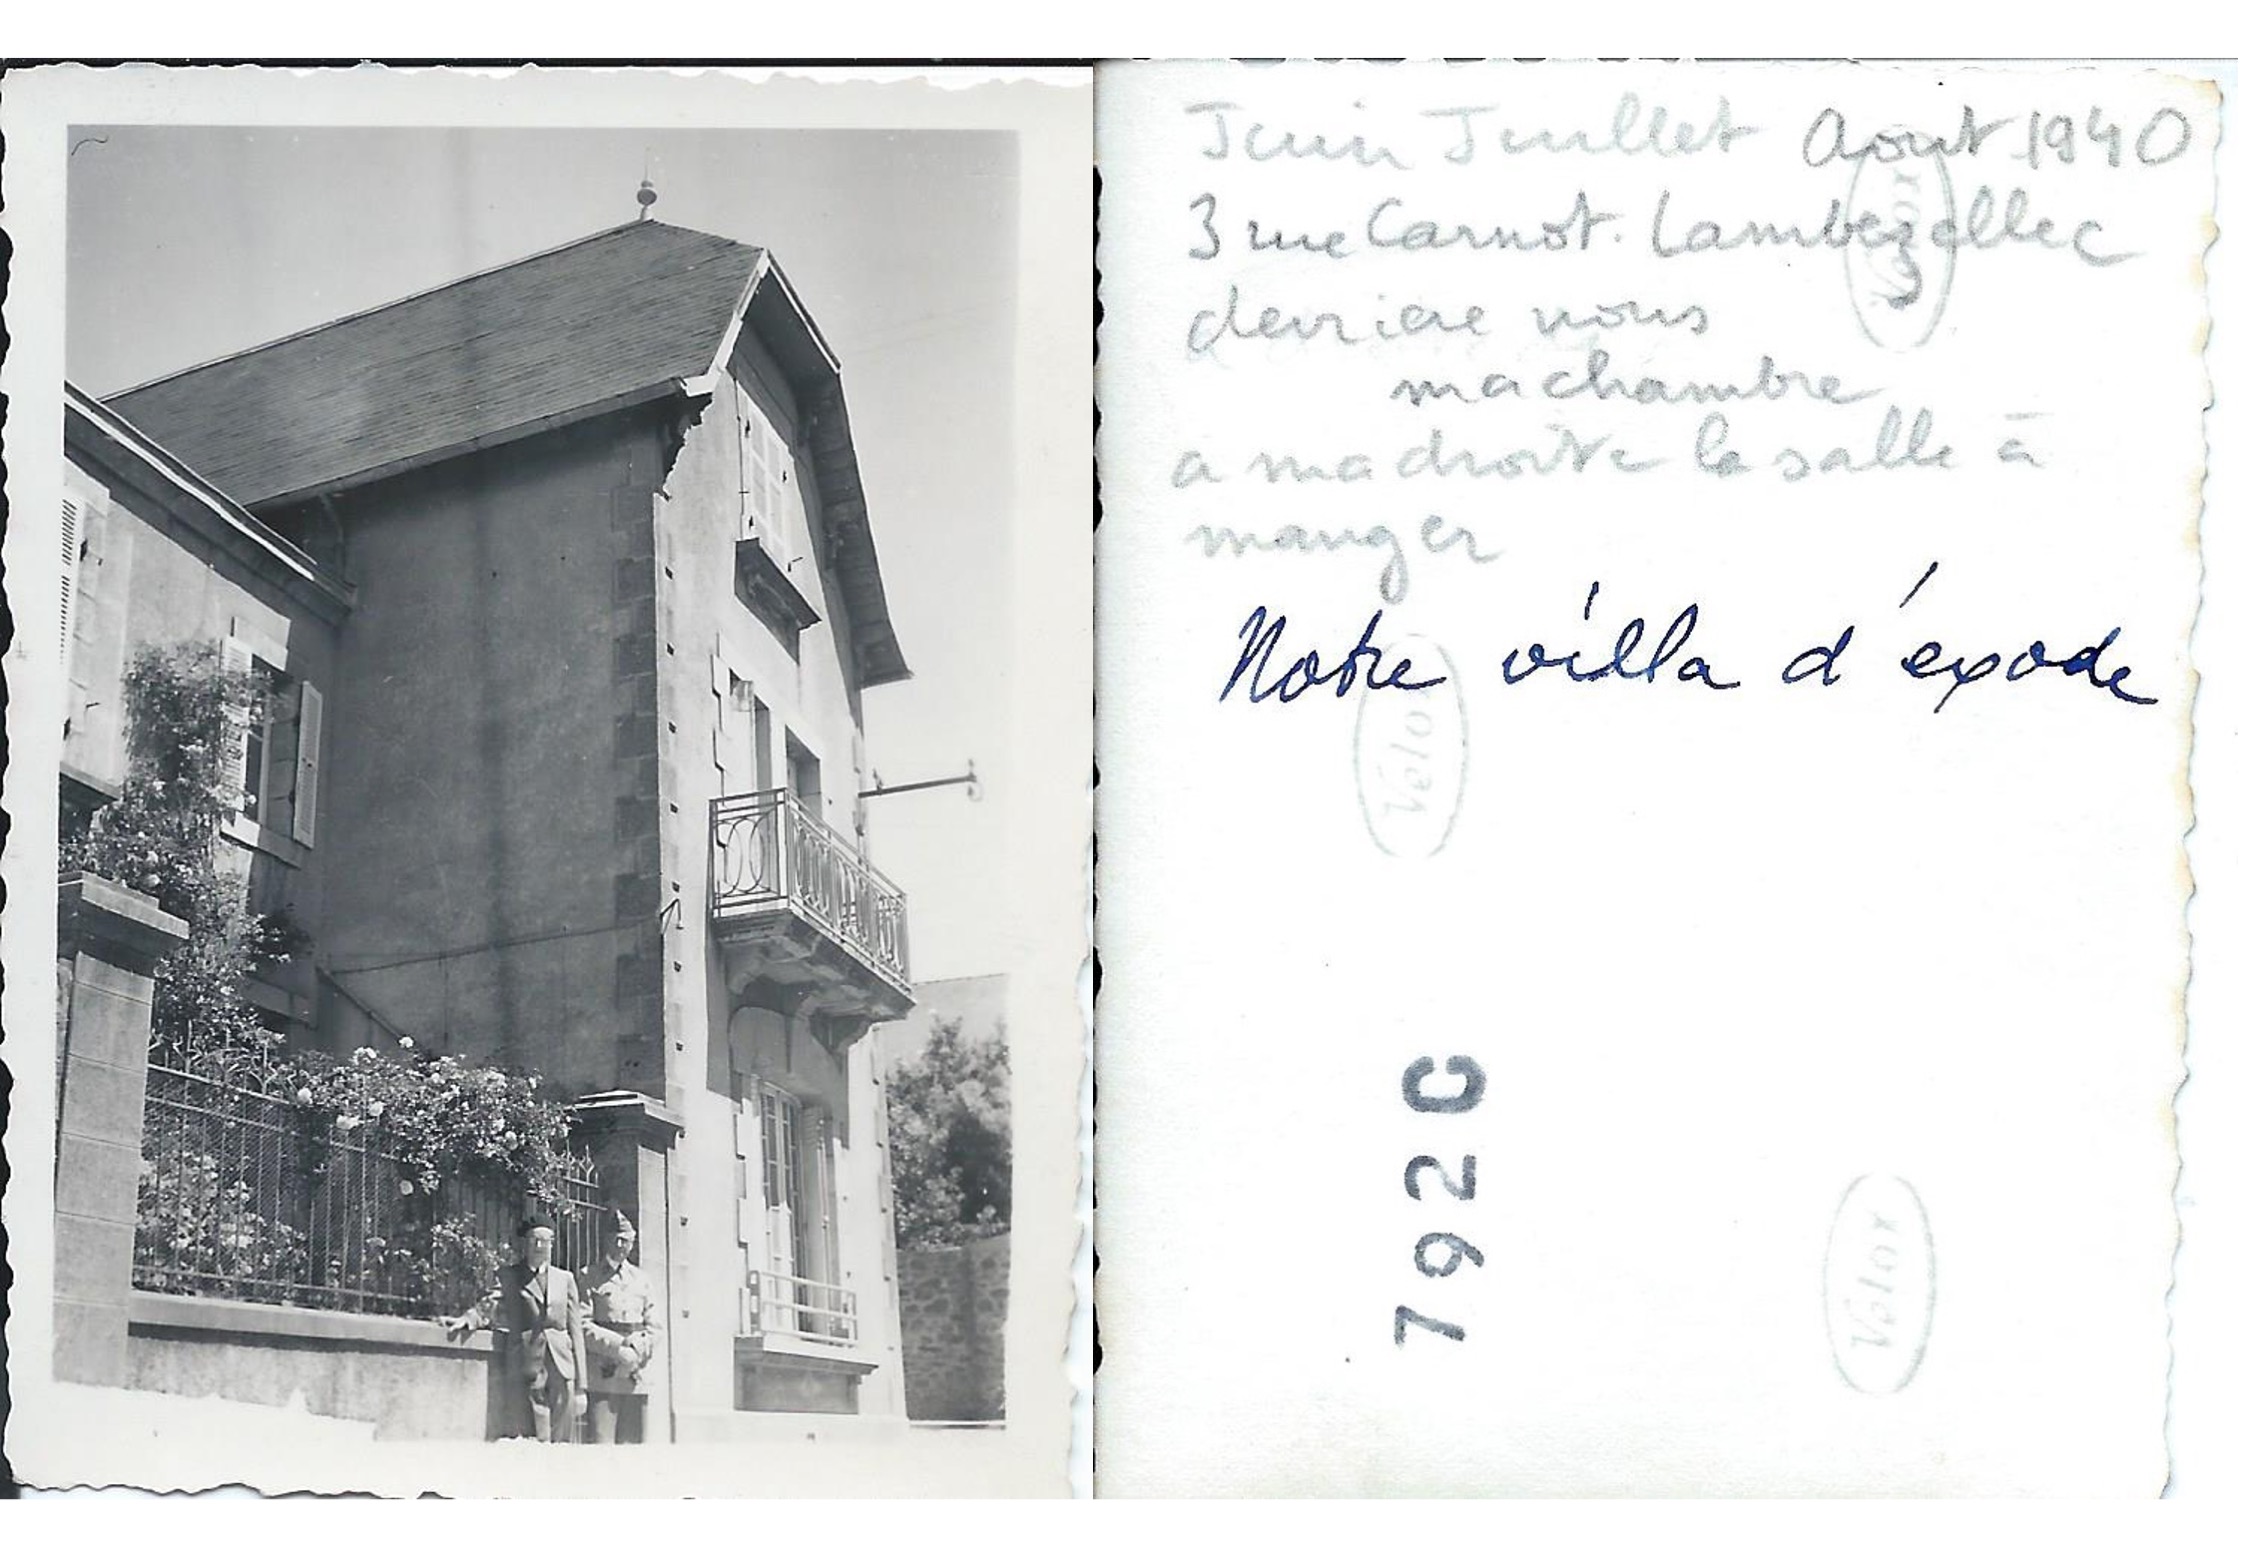 Juin Juillet Aout 1940
3 rue Carnot. Lambezellec
derriere nous
ma chambre
a ma droite la salle à
manger
Notre villa d'éxode
Velox
Velox
Velox
7920